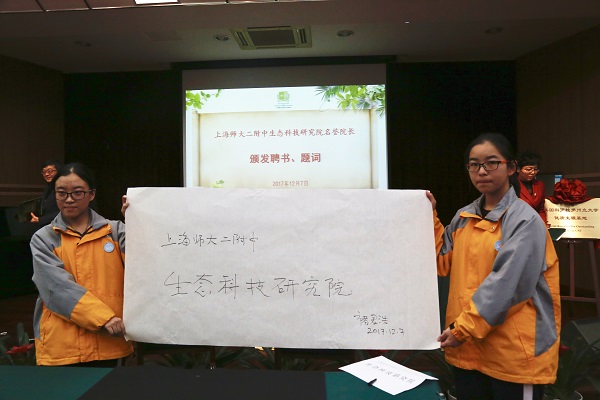 上海师大二附中生态科技研究院名誉院长
颁发聘书、题词
2017年12月7日
上海师大二附中
生态科技研究院
2017.12.7